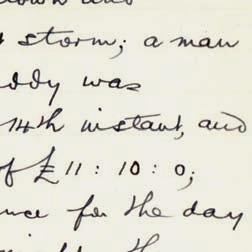 down and
storm; a man
ddy was
14th instant, and
of £11 : 10 : 0;
nce for the day
the